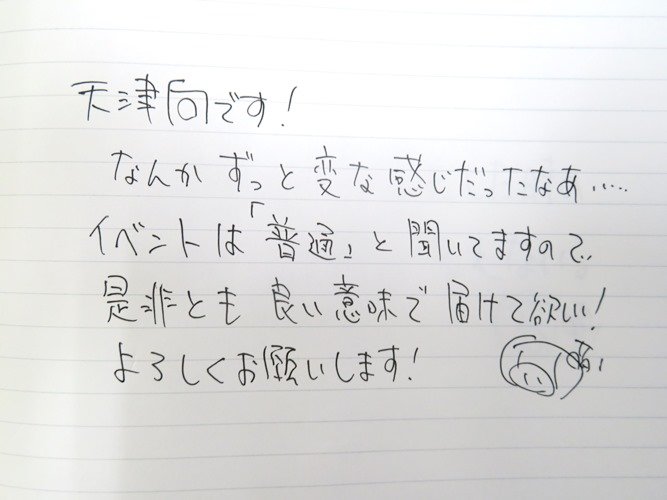 天津向です!
なんかずっと変な感じだったなあ……
イベントは「普通」と聞いてますので、
是非とも良い意味で届けて欲しい!
よろしくお願いします!